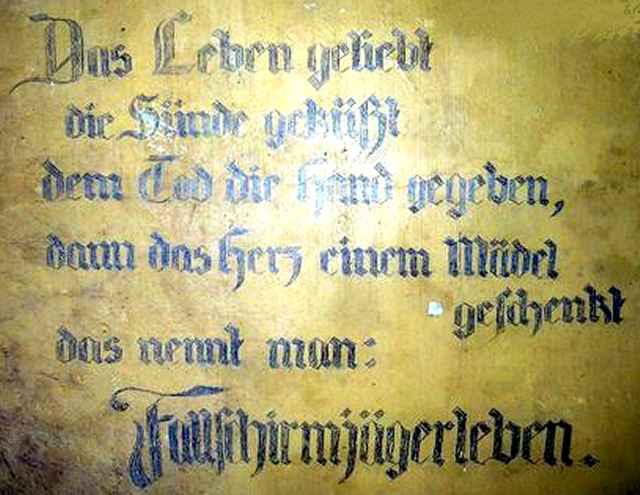 Das Leben geliebt
die Sünde geküßt
dem Tod die Hand gegeben,
dann das Herz einem Mädel
geschenkt
das nennt man:
Fallschirmjägerleben.